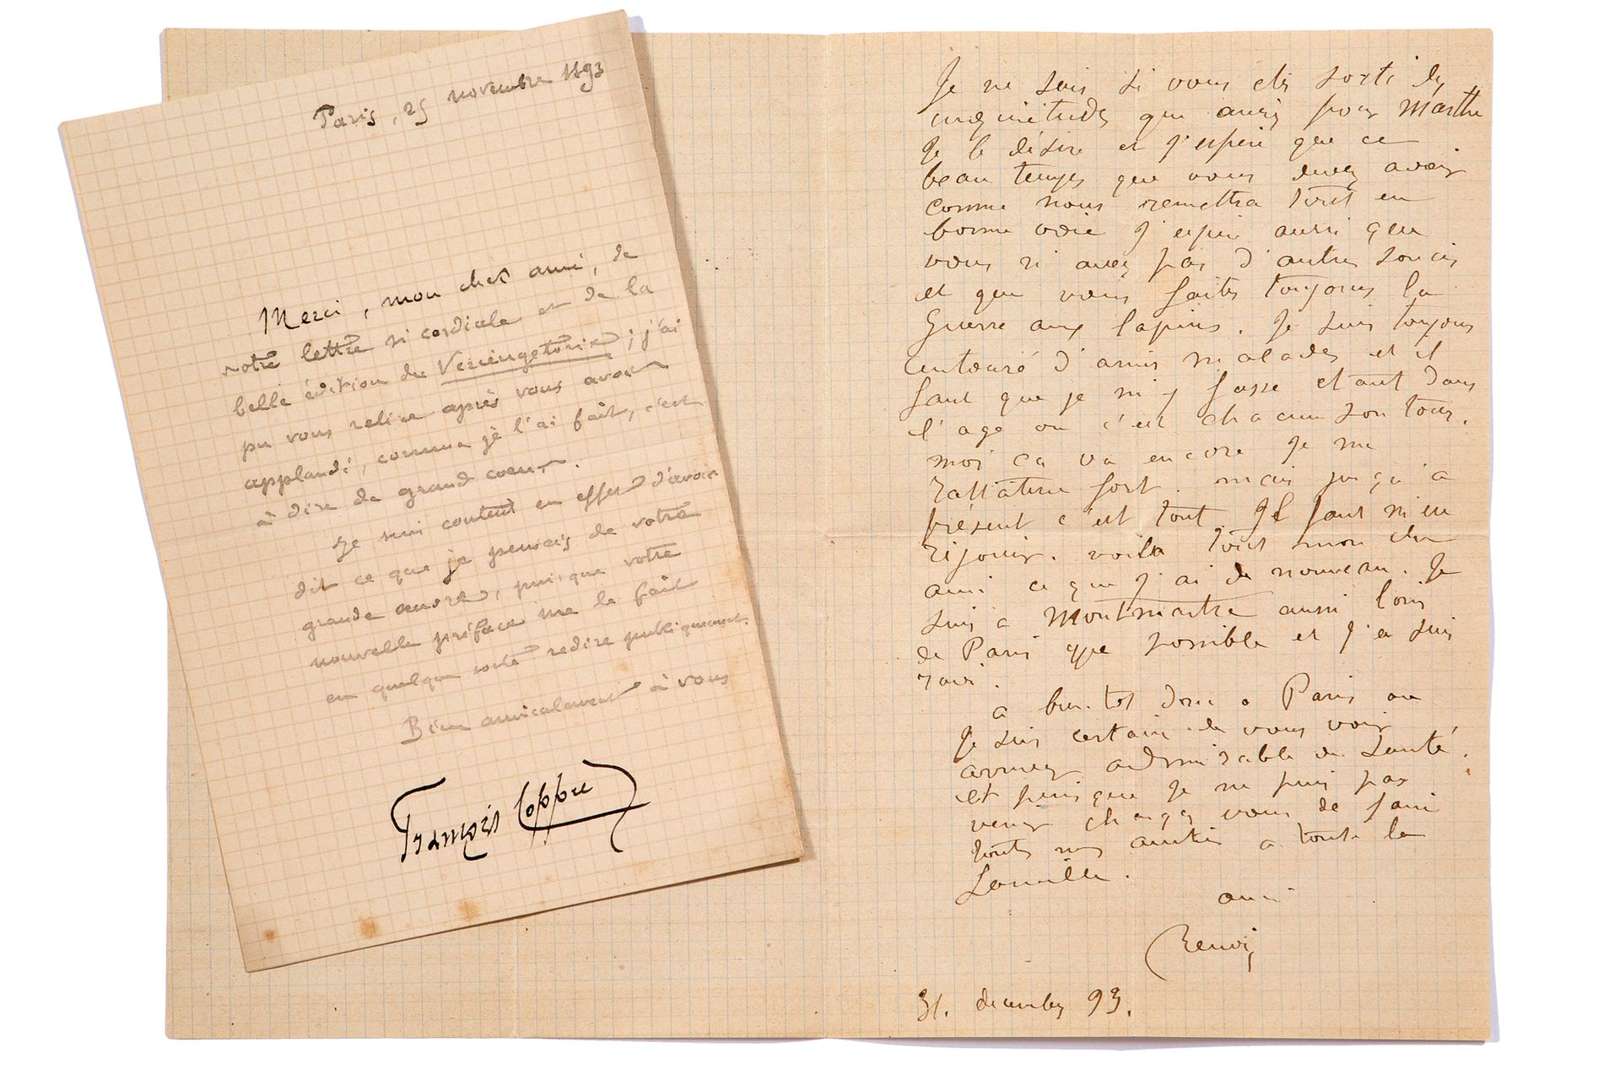 Paris, 25 novembre 1893
Merci, mon cher ami, de
votre lettre si cordiale et de la
belle édition du Vercingétorix ; j'ai
pu vous relire après vous avoir
applaudi, comme je l'ai fait, c'est
à dire de grand coeur.
Je suis content en effet d'avoir
dit ce que je pensais de votre
grande œuvre, puisque votre
nouvelle préface me le fait
en quelque sorte redire publiquement.
Bien amicalement à vous
François Coppée
Je ne sais si vous etes sorti des
inquietudes que aviez pour Marthe
Je le désire et j'espere que ce
beau temps que vous devez avoir
comme nous remettra tout en
bonne voie J'espere aussi que
vous n'avez pas d'autres soucis
et que vous faites toujours la
guerre aux lapins. Je suis toujours
entouré d'amis malades et il
faut que je m'y fasse etant dans
l'age ou c'est chacun son tour.
moi ca va encore Je me
rattatine fort. mais jusqu'a
présent c'est tout. Il faut m'en
rejouir. voila tout mon cher
ami ce que j'ai de nouveau. Je
suis a Montmartre aussi loin
de Paris que possible et j'en suis
ravi.
a bientot donc a Paris ou
Je suis certain de vous voir
arriver admirable de santé.
et puisque je ne puis pas
venir chargez vous de faire
toutes mes amities a toute la
famille.
ami
Renoir
31. decembre 93.